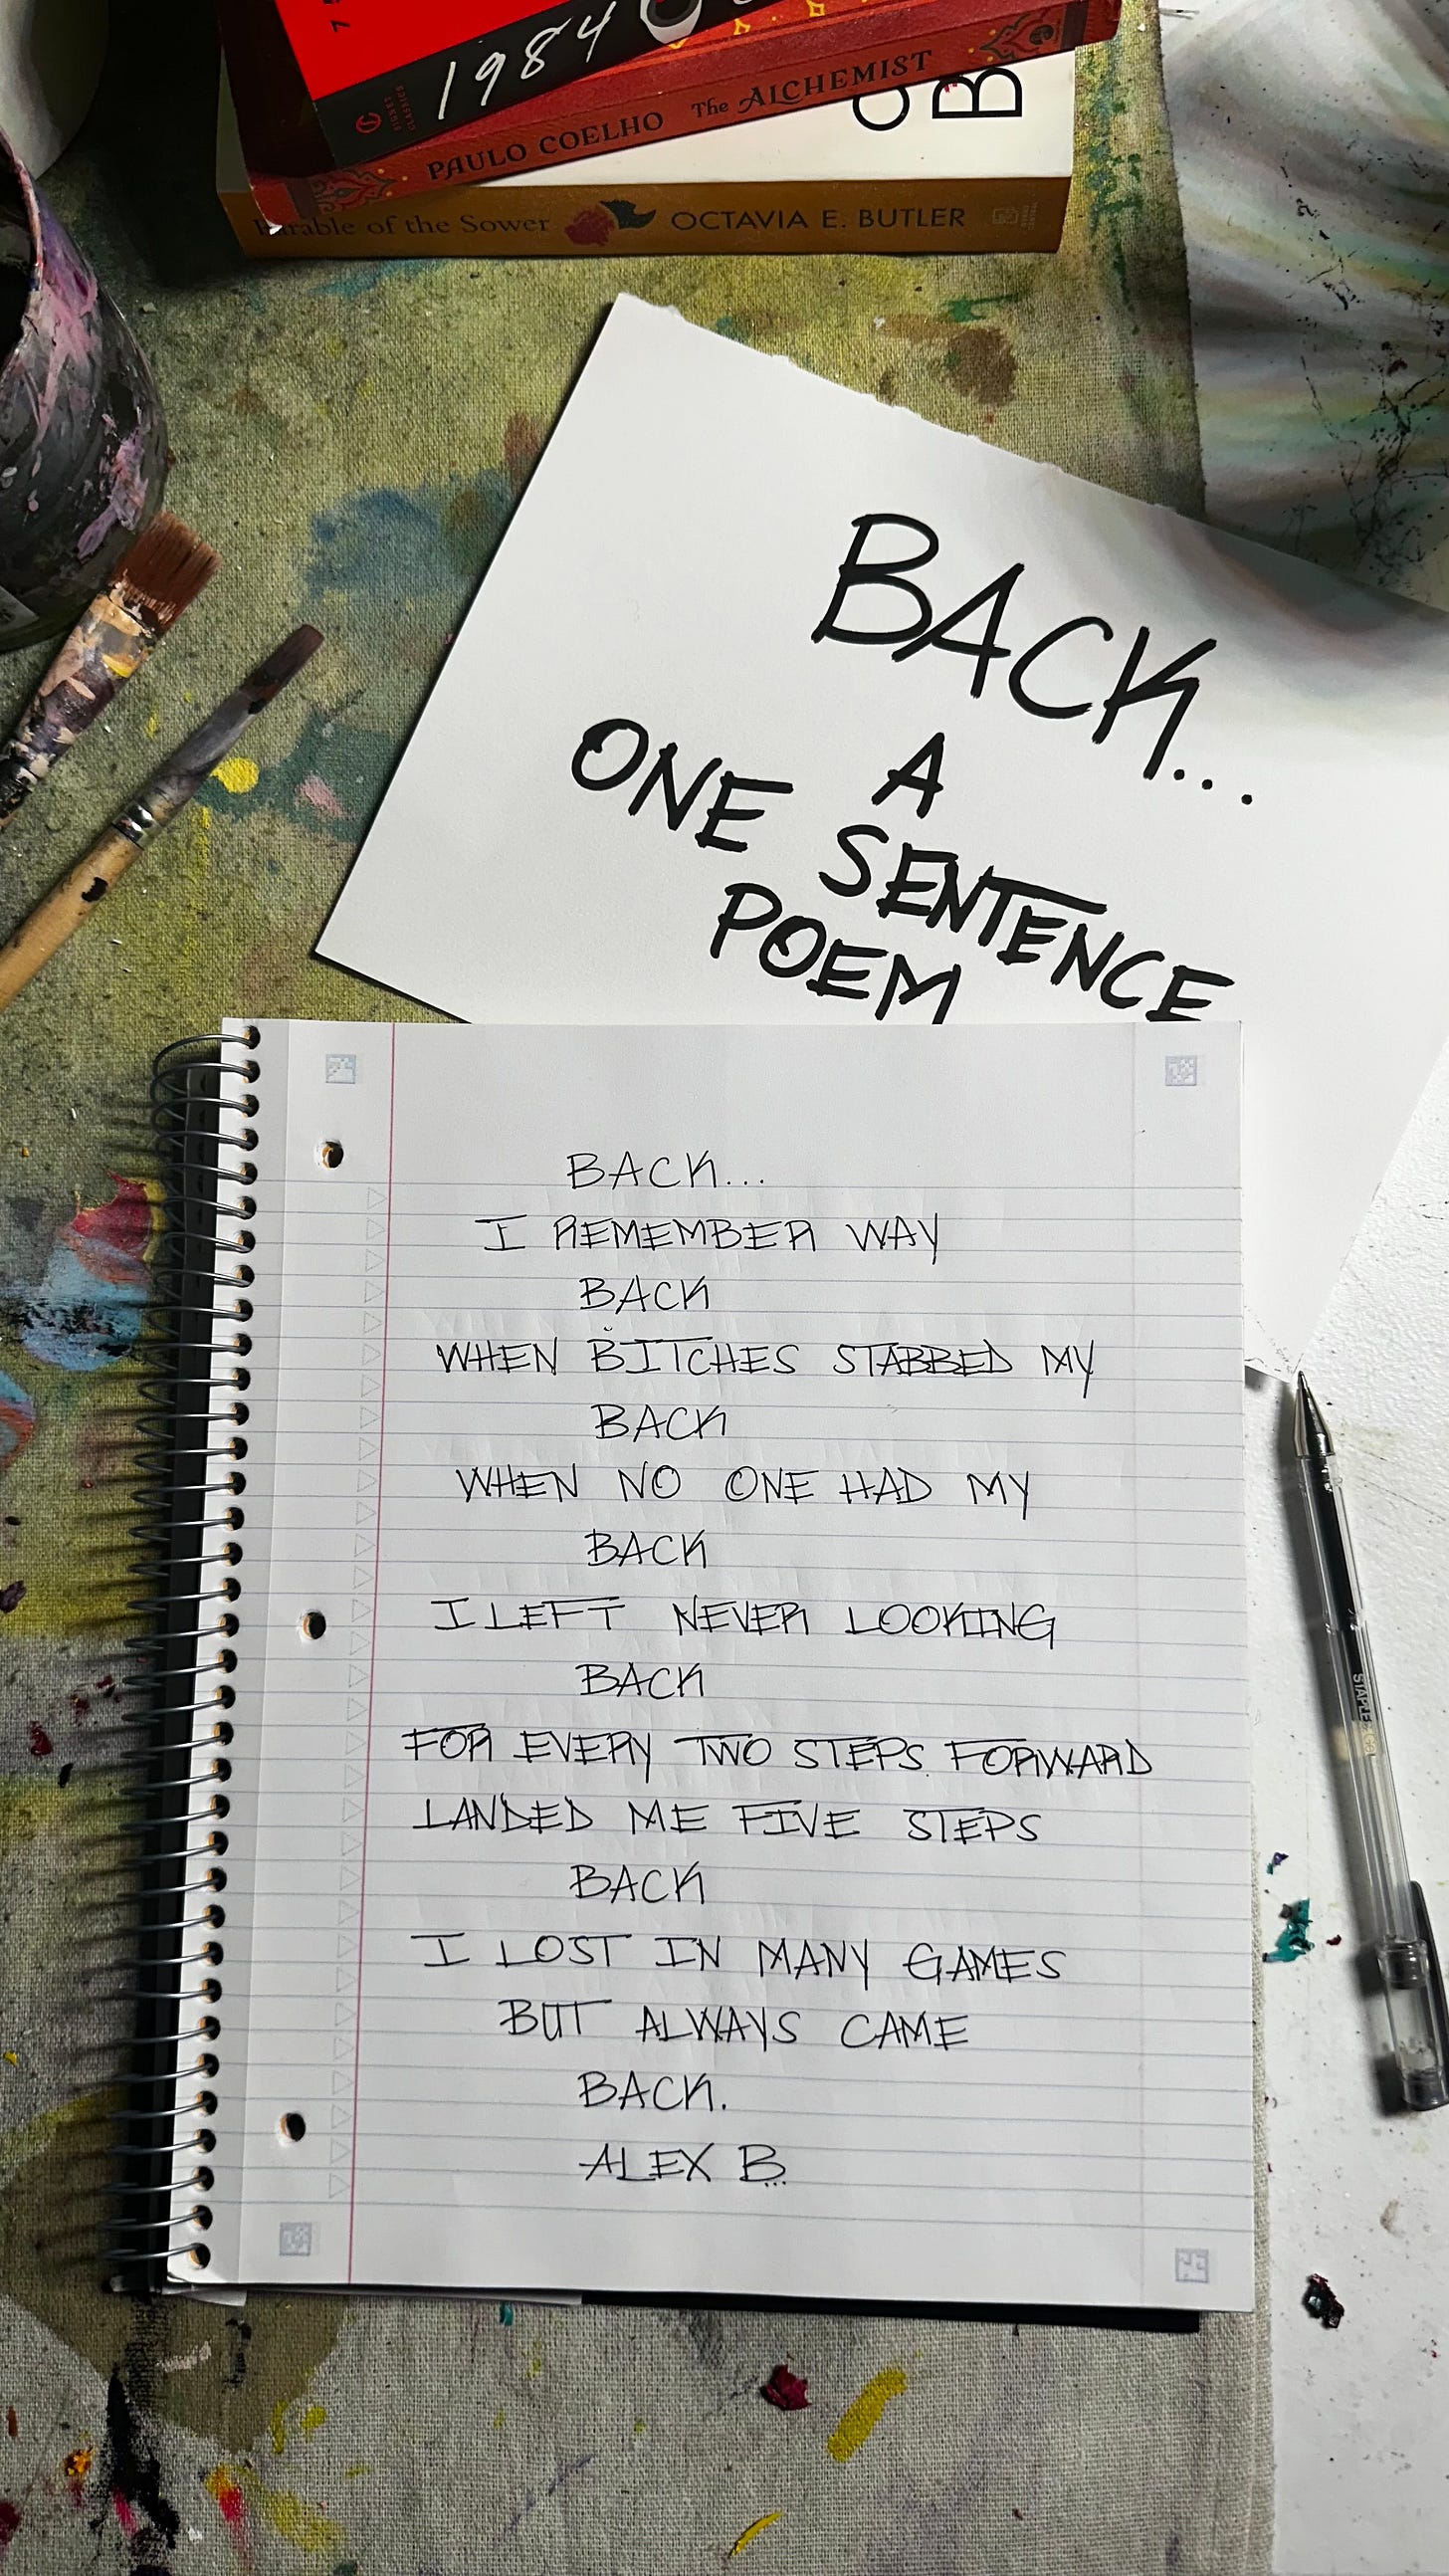 1984
PAULO COELHO The ALCHEMIST
Parable of the Sower OCTAVIA E. BUTLER
BACK...
A
ONE SENTENCE
POEM
BACK...
I REMEMBER WAY
BACK
WHEN BITCHES STABBED MY
BACK
WHEN NO ONE HAD MY
BACK
I LEFT NEVER LOOKING
BACK
FOR EVERY TWO STEPS FORWARD
LANDED ME FIVE STEPS
BACK
I LOST IN MANY GAMES
BUT ALWAYS CAME
BACK.
ALEX B...